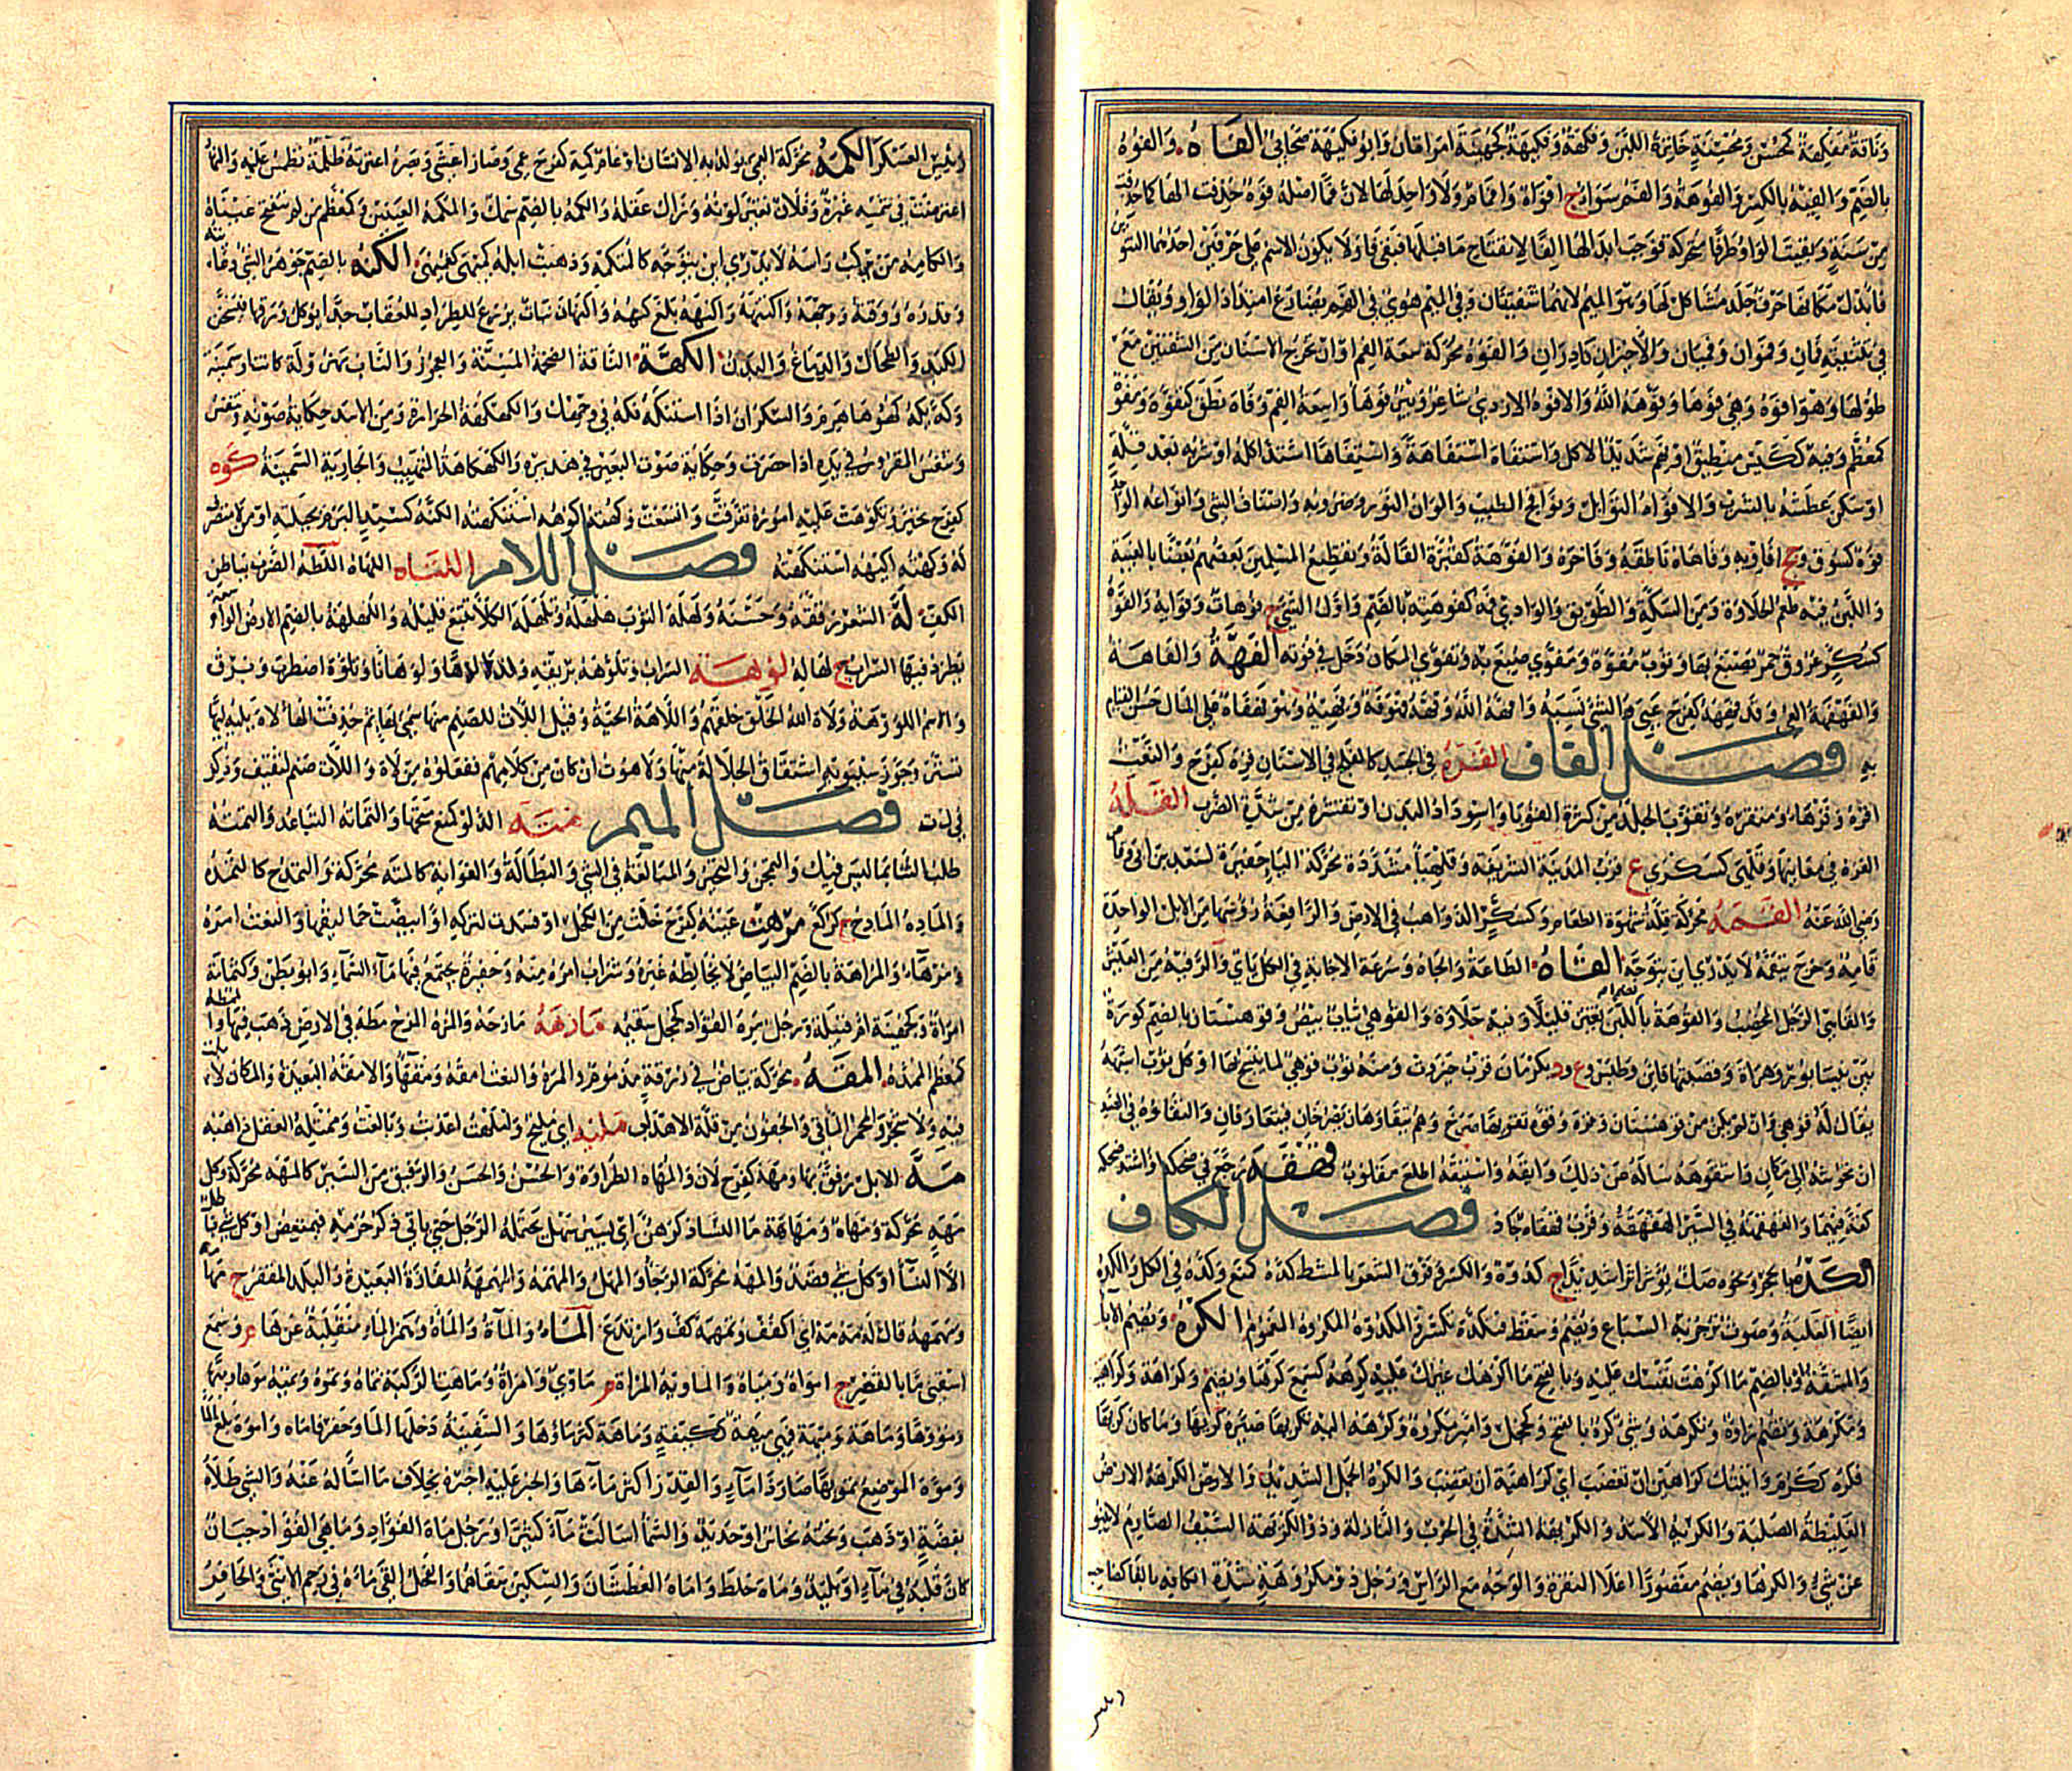 وناقة مفكهة كمحسن ومحسنة خاثرة اللبن وفكهة وفكيهة كجهينة امراتان وابو فكيهة صحابي الفاه والفوه
بالضم والفيه بالكسر والفوهة والفم سواء ج افواه وافمام ولا واحد لها لان فما اصله فوه حذفت الها كما حذفت
من سنة وبقيت الواو طرفا متحركة فوجب ابدالها الفا لانفتاح ما قبلها فبقي فا ولا يكون الاسم على حرفين احدهما التنوين
فابدل مكانها حرف جلد مشاكل لها وهو الميم لانهما شفهيتان وفي الميم هوي في الفم يضارع امتداد الواو ويقال
في تثنيته فمان وفموان وفميان والاخيران نادران والفوه محركة سعة الفم او ان تخرج الاسنان من الشفتين مع
طولها وهو افوه وهي فوها وفوهه الله والافوه الاودي شاعر وبئر فوها واسعة الفم وفاه نطق كتفوه ومفوه
كمعظم وفيه ككيس منطيق او نهم شديد الاكل واستفاه استفاهة واستيفاها اشتد اكله او شربه بعد قلة
او سكن عطشه بالشرب والافواه التوابل ونوافح الطيب والوان النور وضروبه واصناف الشي وانواعه الواحد
فوه كسوق وجج افاويه وفاهاه ناطقه وفاخره والفوهة كقبرة القالة وتقطيع المسلمين بعضهم بعضا بالغيبة
واللبن فيه طعم الحلاوة ومن السكة والطريق والوادي فمه كفوهته بالضم واول الشي ج فوهات وفوايه والفوه
كسكر عروق حمر يصبغ بها وثوب مفوه ومفوى صبغ به وتفوه المكان دخل في فوته الفهة والفاهة
والفهفهة العي وقد فهه كفرح عيي والشي نسيه وافهه الله وفههه فهو فه وفهيه وهو فهفاه على المال حسن القيام
به فصل القاف القره في الجسد كالقلح في الاسنان قره كفرح والنعت
اقره وقرهاء ومتقره وتقوب الجلد من كثرة القوبا واسوداد البدن او تقشره من شدة الضرب القله
القره في معانيها وقلهى كسكرى ع قرب المدينة الشريفة وقلهيا مشددة محركة اليا حفيرة لسعد بن ابي وقاص
رضي الله عنه القمه محركة قلة شهوة الطعام وكسكر الذواهب في الارض والرافعة رؤسها من الابل الواحدة
قامه وخرج يتقمه لا يدري اين يتوجه القاه الطاعة والجاه وسرعة الاجابة في الاكل ياتي والرفيه من العيش
والقاهي الرجل المخصب والقوهة باللبن تغير قليلا وفيه حلاوة والقوهي ثياب بيض وقوهستان بالضم كورة
بين نيسابور وهراة وقصبتها قاين وطبس وع ود بكرمان قرب جيرفت ومنه ثوب قوهي لما ينسج بها او كل ثوب اشبهه
يقال له قوهي وان لم يكن من قوهستان وهزه وقوه تقويها صرخ وهم يتقاوهان يصرخان فيتعارفان والتقاوه في الصيد
ان تحوشه الى مكان واستقوهه ساله من ذلك وايقه واستيقه اطاع مقلوب قهقه رجع في ضحكه او اشتد ضحكه
كقه فيهما والقهقهة في السير الهقهقة وقرب قهقاه جاد فصل الكاف
الكده بالحجر ونحوه صك يؤثر اثرا شديدا ج كدوه والكسر وفرق الشعر بالمشط كده كمنع وكده في الكل والكده
ايضا الغلبة وصوت يزجر به السباع ويضم وسقط فتكده تكسر والمكدوه المكروه المغموم الكره ويضم الابا
والمشقة او بالضم ما اكرهت نفسك عليه وبالفتح ما اكرهك غيرك عليه كرهه كسمع كرها ويضم وكراهة وكراهية
ومكرهة وتضم راؤه وتكرهه وشي كره بالفتح وكخجل وامير مكروه وكرهه اليه تكريها صيره كريها وما كان كريها
فكره ككرم واتيتك كراهين ان تغضب اي كراهية ان تغضب والكره الجمل الشديد والارض الكرهة الارض
الغليظة الصلبة والكريه الاسد والكريهة الشدة في الحرب والنازلة وذو الكريهة السيف الصارم لا ينبو
عن شي والكرها ويضم مقصورا اعلا النقرة والوجه مع الراس ورجل ذو مكروهة شدة الكافه بالفا كصاحب
رئيس
رئيس العسكر الكمه محركة العمى يولد به الانسان او عام كمه كفرح عمي وصار اعشى وبصره اعترته ظلمة تطمس عليه والنهار
اعترضت في شمسه غبرة وفلان تغير لونه وزال عقله والكمه بالضم سمك والمكمه العينين كمعظم من لم تنفتح عيناه
والكامه من يركب راسه لا يدري اين يتوجه كالمتكمه وذهبت ابله كميهى كعميهى الكنه بالضم جوهر الشي وغايته
وقدره ووقته ووجهه واكتنهه واكنهه بلغ كنهه واكنهان نبات يزرع للطراد للعقاب جدا يؤكل ورقها فيسخن
الكبد والطحال والدماغ والبدن الكهة الناقة الضخمة المسنة والعجوز والناب مهزولة كانت او سمينة
وكه يكه كهوها هرم والسكران اذا استنكه نكه في وجهك والكهكهة الحرارة ومن الاسد حكاية صوته وتنفس
وتنفس المقرور في يده اذا خصرت وحكاية صوت البعير في هديره والكهكاهة المتهيب والجارية السمينة كوه
كفرح تحير وتكوهت عليه اموره تفرقت واتسعت وكهته اكوهه استنكهته الكيه كسيد البرم بحيلته او من لا متصرف
له وكهته اكيهه استنكهته فصل اللام اللتاه اللهاه اللطه الضرب بباطن
الكف له الشعر رققه وحسنه ولهله الثوب هلهله وتلهله الكلا تتبع قليله واللهلهة بالضم الارض الواسعة
يطرد فيها السراب ج لهاله لوهة السراب وتلوهه بريقه ولاه لوها ولوهانا وتلوه اضطرب وبرق
والاسم اللووهة ولاه الله الخلق خلقهم واللاهة الحية وقيل اللات للصنم منها سمي بها ثم حذفت الها لاه يليه ليها
تستر وجوز سيبويه اشتقاق الجلالة منها ولاهوت ان كان من كلامهم ففعلوت من لاه واللات صنم لثقيف وذكر
في ل ت ت فصل الميم مته الدلو كمنع متحها والتماته التباعد والتمته
طلب الثنا بما ليس فيك والتمجن والتحير والمبالغة في الشي والبطالة والغواية كالمته محركة والتمدح كالتمده
والماده المادح ج كركع مرهت عينه كفرح خلت من الكحل او فسدت لتركه او ابيضت حماليقها والنعت امره
ومرهاء والمرهة بالضم البياض لا يخالطه غيره وشراب امره منه وحفيرة يجتمع فيها ماء السماء وابو بطن وكثمامة
امراة وكجهينة ام قبيلة ورجل مره الفؤاد كخجل سقيمه مازهه مازحه والمزه المزح مطه في الارض ذهب فيها والمطه
كمعظم الممده المقه محركة بياض في زرقة مذموم والمره والنعت امقه ومقها والامقه البعيد والمكان لا نبت
فيه ولا شجر والمحمر الماقي والجفون من قلة الاهداب مليه اي مليح وامتلهت لعذبت وبالغت وممتله العقل ذاهبه
مه الابل رفق بها ومهه كفرح لان والمهاه الطراوة والحسن والحسن والرفيق من السير كالمهه محركة وكل شي
مهه محركة ومهاه ومهاهة ما النسا وذكرهن اي يسير سهل يحتمله الرجل حتى ياتي ذكر حرمه فيمتعض او كل شي باطل
الا النساء او كل شي قصد والمهه محركة الرجا والمهل والمهمه والمهمهة المفازة البعيدة والبلد المقفر ج مهامه
ومهمهه قال له مه مه اي اكفف وتمهمه كف وارتدع الماء والماة والماءة وهمز الماء منقلبة عن ها م وسمع
اسقني ما بالقصر ج امواه ومياه والماوية المراة م ماوي وامراة وماهت الركية تماه وتموه وتميه موها وميها
ومووها وماهة وميهة فهي ميهة ككيسة وماهة كثر ماؤها والسفينة دخلها الما وحفر فاماه واموه بلغ الما
وموه الموضع تمويها صار ذا ماء والقدر اكثر ماءها والخبر عليه اخبره بخلاف ما ساله عنه والشي طلاه
بفضة او ذهب وتحته نحاس او حديد والسما اسالت ماء كثيرا ورجل ماه الفؤاد وماهي الفؤاد جبان
كان قلبه في ماء او بليد وماه خلط واماه العطشان والسكين سقاهما والفحل القى ماءه في رحم الانثى والحافر